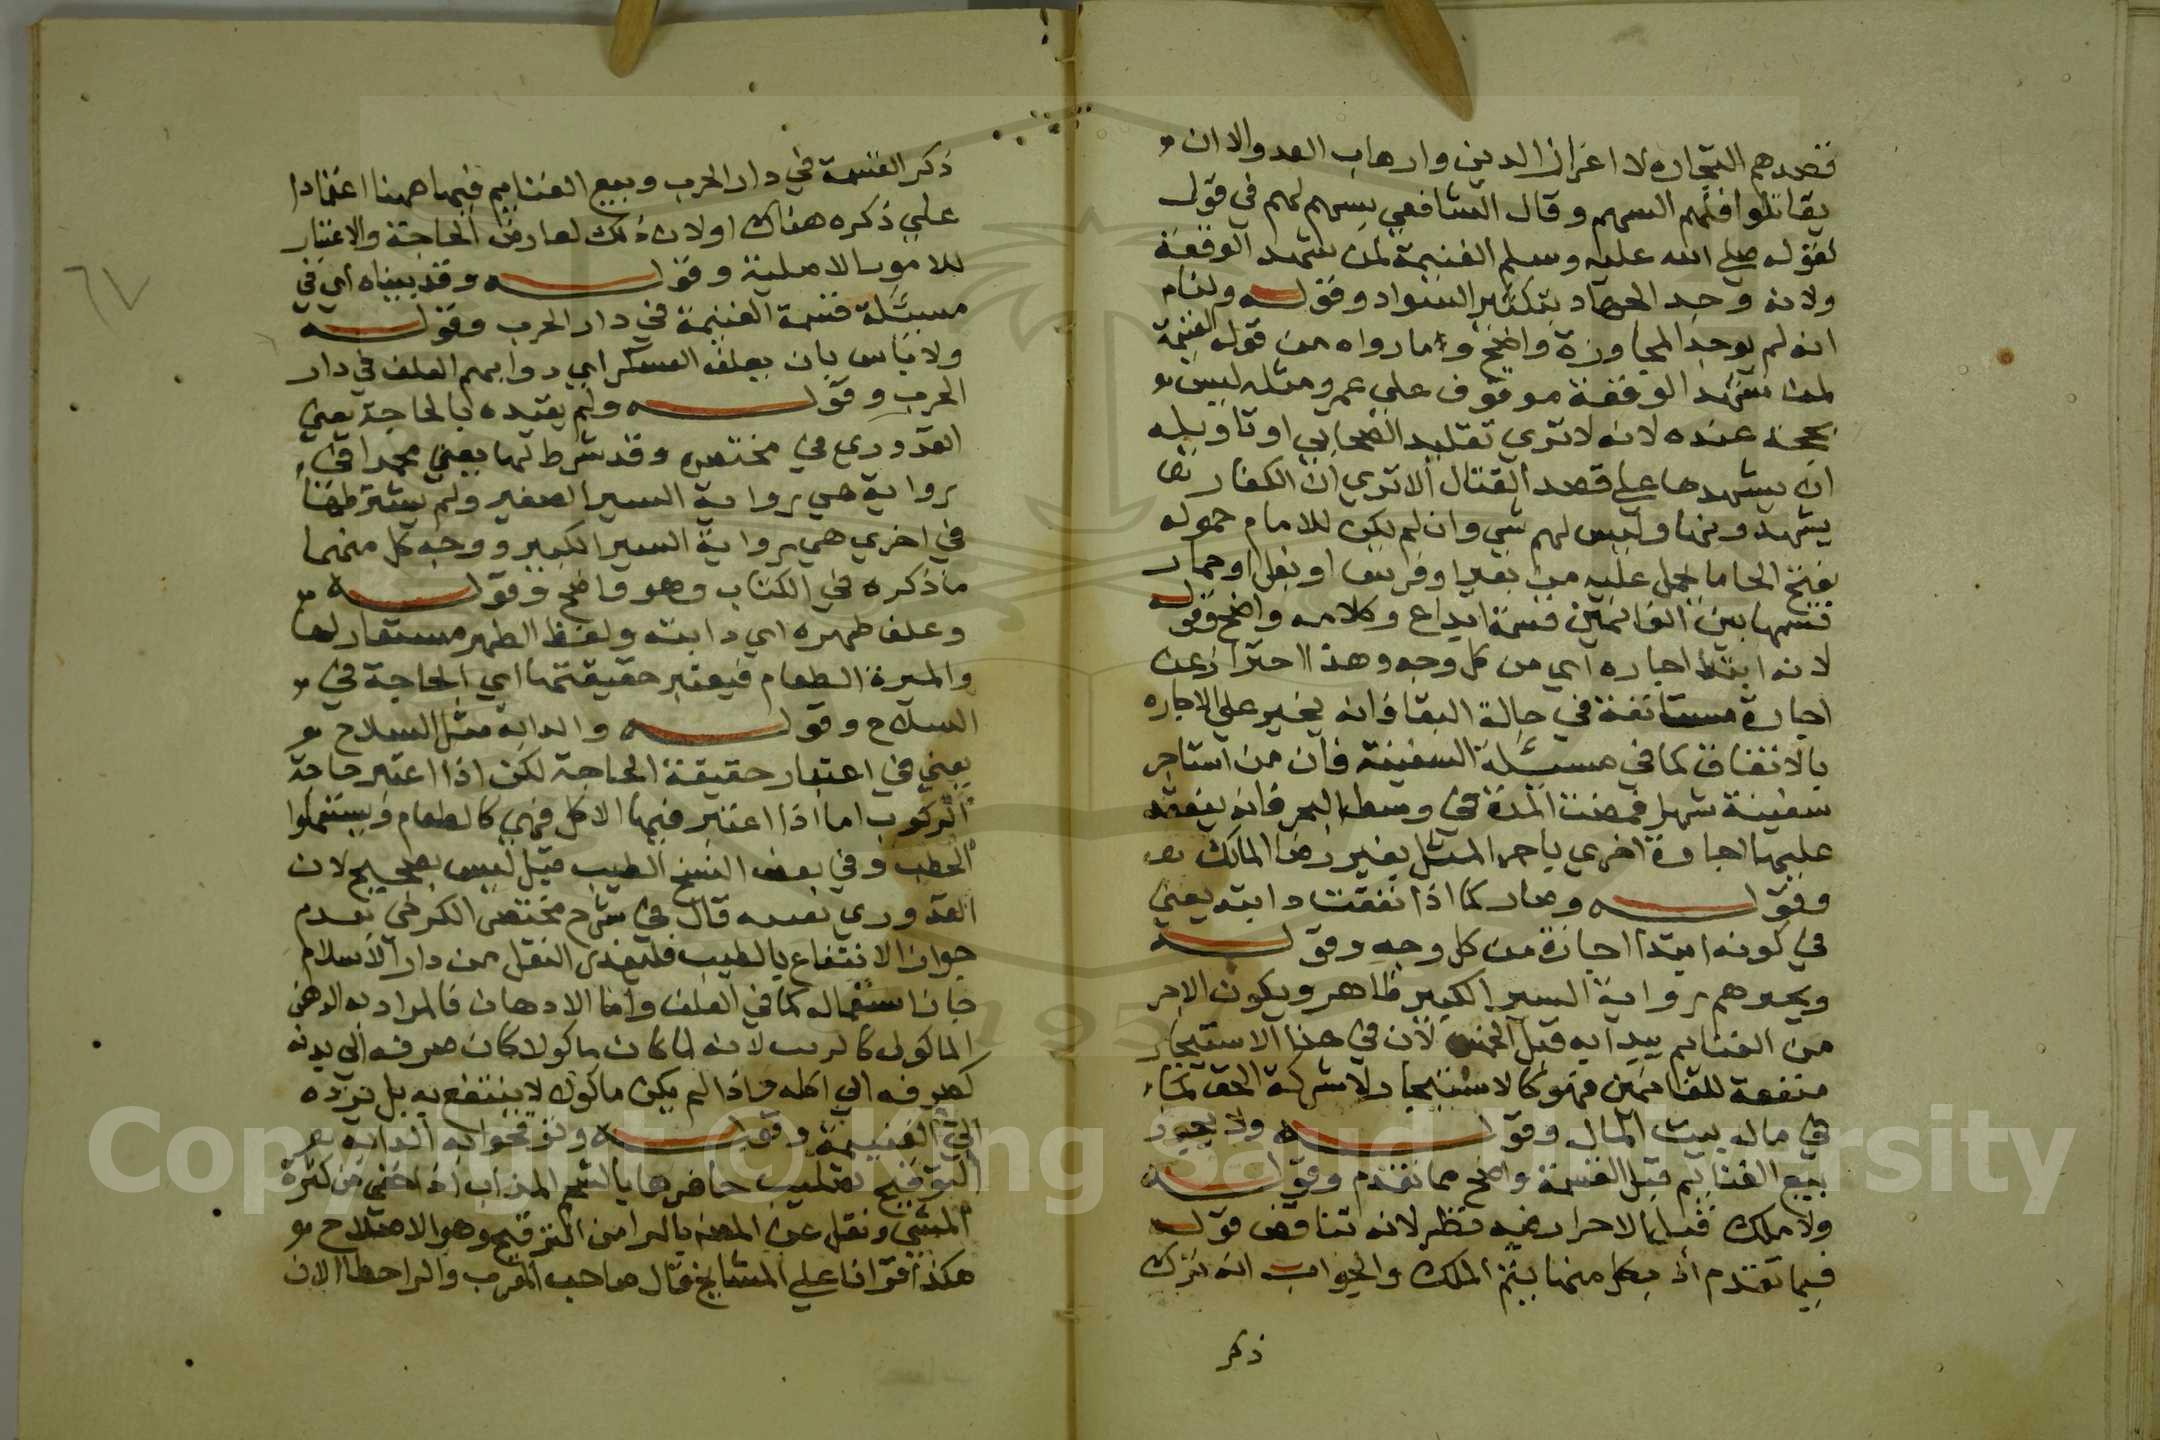 قصدهم التجاره لا اعزاز الدين وارهاب العدو الا ان
يقاتلوا فلهم السهم وقال الشافعي يسهم لهم في قول
لقوله صلى الله عليه وسلم الغنيمة لمن شهد الوقعة
ولانه وجد الجهاد بتكثير السواد وقوله ولنا
انه لم يوجد المجاوزة واضح وما رواه من قوله الغنيمة
لمن شهد الوقعة موقوف على عمر ومثله ليس
بحجة عنده لانه لا تري تقليد الصحابي او تاويله
ان يشهدها على قصد القتال ألا تري ان الكفار
يشهدونها وليس لهم شي وان لم يكن للامام حموله
بفتح الحا ما يحمل عليه من بعير او فرس او بغل او حمار
قسمها بين الغانمين قسمة ايداع وكلامه واضح وقوله
لانه ابتدا اجاره اي من كل وجه وهذا احتراز عن
اجارة مستانفة في حالة البقا فانه يجبر على الاجاره
بالاتفاق كما في مسئلة السفينة فان من استاجر
سفينة شهرا فمضت المدة في وسط البحر فانه ينعقد
عليها اجارة اخري باجر المثل بغير رضا المالك
وقوله وصار كما اذا نفقت دابته يعني
في كونه ابتدا اجازة من كل وجه وقوله
ويجبرهم رواية السير الكبير ظاهر ويكون الاجر
من الغنايم يبدا به قبل الخمس لان في هذا الاستيجار
منفعة للغانمين فهو كالاستيجار لا شركة الحق لماء
في مال بيت المال وقوله ولا يجوز
بيع الغنايم قبل القسمة واضح مما تقدم وقوله
ولا ملك قبل الاحراز فيه نظر لانه تناقض قوله
فيما تقدم اذ بكل منهما يتم الملك والجواب انه ترك
ذكر
ذكر القسمة في دار الحرب وبيع الغنايم فيها ههنا اعتمادا
علي ذكره هناك اولان ذلك لعارض الحاجة والاعتبار
للامور الاصلية وقوله وقد بيناه اي في
مسئلة قسمة الغنيمة في دار الحرب وقوله
ولا باس بان يعلف العسكر اي دوابهم العلف في دار
الحرب وقوله ولم يقيده بالحاجة يعني
القدوري في مختصره وقد شرط لها يعني محمدا في
رواية هي رواية السير الصغير ولم يشترطها
في اخري هي رواية السير الكبير ووجه كل منهما
ما ذكره في الكتاب وهو واضح وقوله
وعلف ظهره اي دابته ولفظ الظهر مستعار لها
والميرة الطعام فيعتبر حقيقتها اي الحاجة في
السلاح وقوله والدابة مثل السلاح
يعني في اعتبار حقيقة الحاجة لكن اذا اعتبر حاجة
الركوب اما اذا اعتبر فيها الاكل فهي كالطعام ويستعملوا
الحطب وفي بعض النسخ الطيب قيل ليس بصحيح لان
القدوري نفسه قال في شرح مختصر الكرخي بعدم
جواز الانتفاع بالطيب فليفدي النقل من دار الاسلام
جاز استعماله كما في العلف واما الادهان فالمراد به الدهن
الماكول كالزيت لانه لما كان ماكولا كان صرفه الي بدنه
كصرفه الي اكله واذا لم يكن ماكولا لا ينتفع به بل يرده
الي الغنيمة وقوله وتوقحوا به الدابة
التوقيح تصليب حافرها بالشحم المذاب اذا حفي من كثرة
المشي ونقل عن المصنف بالرا من الترقيح وهو الاصلاح
هكذا قرانا علي المشايخ قال صاحب المغرب والرا خطا الان